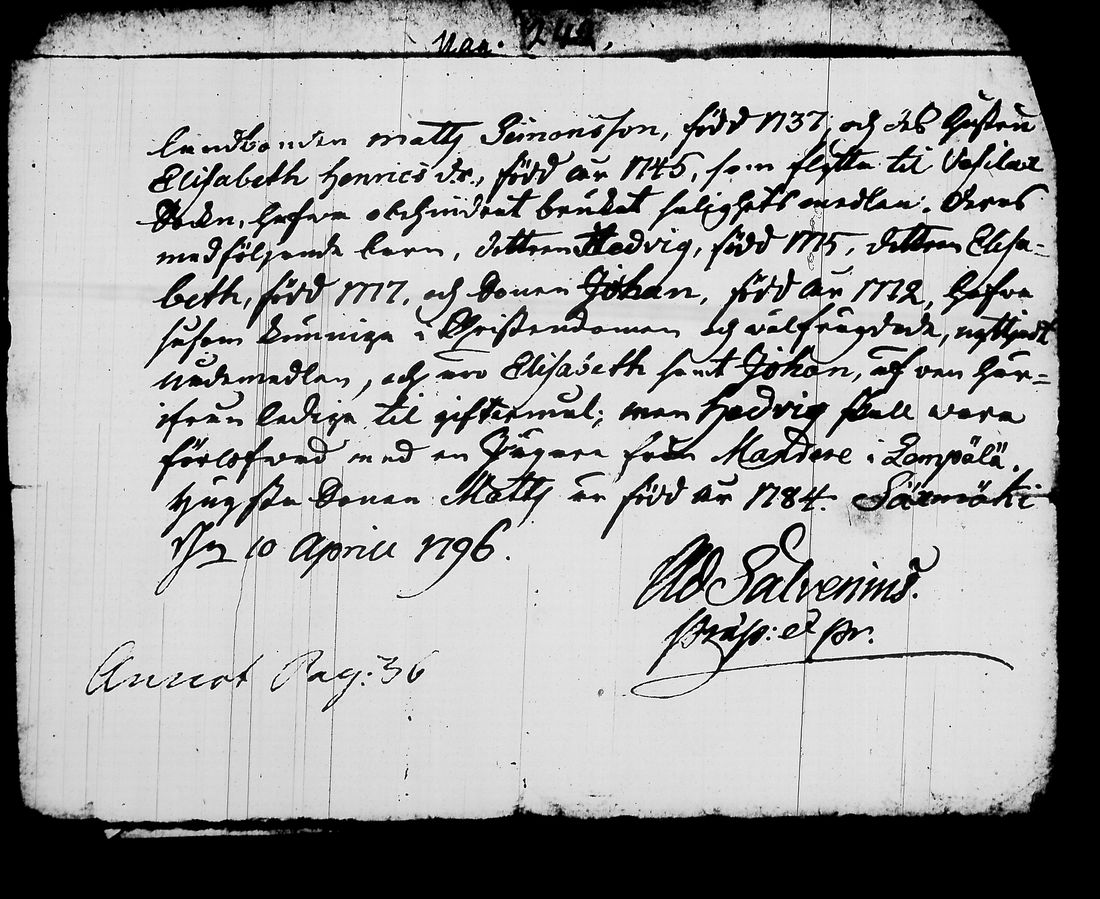 242.
Landbonden Matts Simonsson, född 1737, och des Hustru
Elisabeth Henrics dr., född år 1745, som flytta til Vesilax
Sockn, hafva obehindrat brukat salighets medlen. Deras
medföljande barn, dottren Hedvig, född 1775, dottren Elisa-
beth, född 1777, och Sonen Johan, född år 1772, hafva
såsom kunniga i Christendomen och välfrägdade, nyttjadt
nådemedlen, och äro Elisabeth samt Johan, af ven här-
ifrån lediga til giftermål; men Hedvig skall vara
förlofvad med en Jägare från Mandere i Lempälä.
Yngsta Sonen Matts är född år 1784. Säxmäki
10 Aprill 1796.
Ad Salvenius.
Præp: et Pr.
Annot Pag: 36